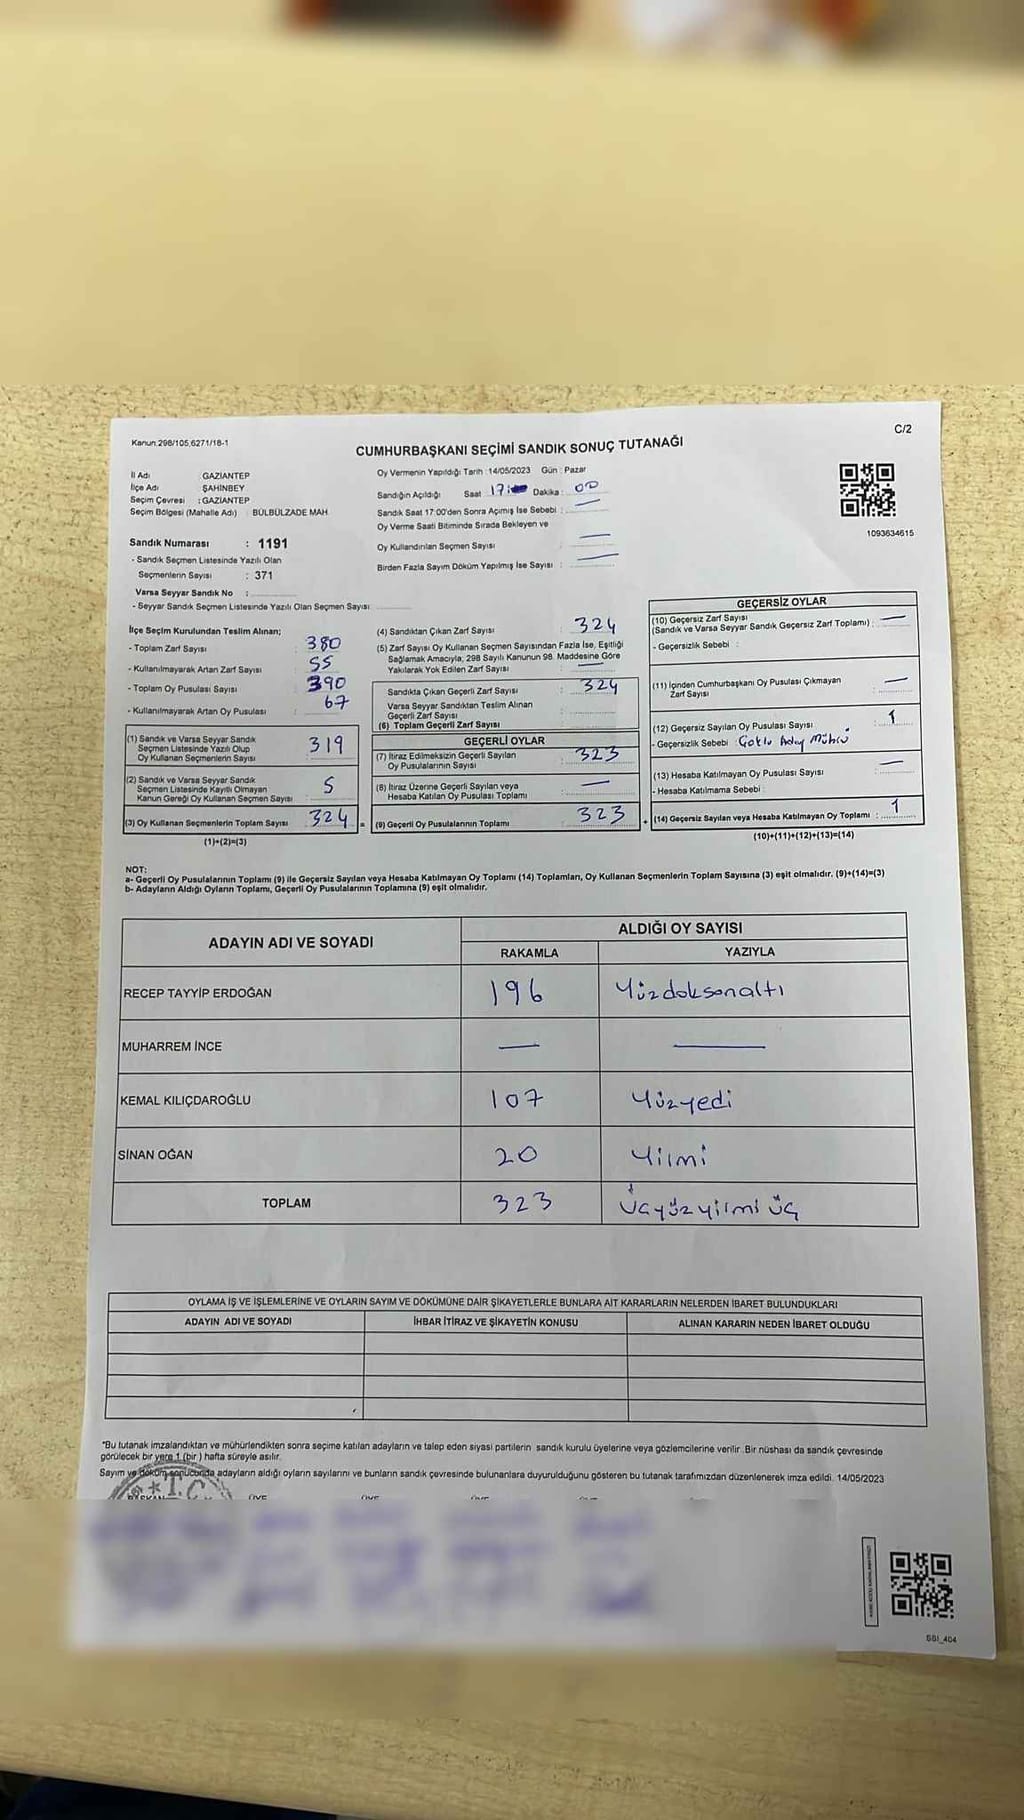 Kanun.298/105,6271/18-1
C/2
CUMHURBAŞKANI SEÇİMİ SANDIK SONUÇ TUTANAĞI
İl Adı : GAZİANTEP
İlçe Adı : ŞAHİNBEY
Seçim Çevresi : GAZİANTEP
Seçim Bölgesi (Mahalle Adı) : BÜLBÜLZADE MAH.
Oy Vermenin Yapıldığı Tarih : 14/05/2023 Gün : Pazar
Sandığın Açıldığı Saat 17: Dakika : 00
Sandık Saat 17:00'den Sonra Açmış İse Sebebi : —
Oy Verme Saati Bitiminde Sırada Bekleyen ve
Oy Kullandırılan Seçmen Sayısı : —
Birden Fazla Sayım Döküm Yapılmış İse Sayısı : —
1093634615
Sandık Numarası : 1191
- Sandık Seçmen Listesinde Yazılı Olan
Seçmenlerin Sayısı : 371
Varsa Seyyar Sandık No :
- Seyyar Sandık Seçmen Listesinde Yazılı Olan Seçmen Sayısı:
İlçe Seçim Kurulundan Teslim Alınan;
- Toplam Zarf Sayısı : 380
- Kullanılmayarak Artan Zarf Sayısı : 55
- Toplam Oy Pusulası Sayısı : 390
- Kullanılmayarak Artan Oy Pusulası : 67
(1) Sandık ve Varsa Seyyar Sandık
Seçmen Listesinde Yazılı Olup
Oy Kullanan Seçmenlerin Sayısı : 319
(2) Sandık ve Varsa Seyyar Sandık
Seçmen Listesinde Kayıtlı Olmayan
Kanun Gereği Oy Kullanan Seçmen Sayısı : 5
(3) Oy Kullanan Seçmenlerin Toplam Sayısı : 324 =
(1)+(2)=(3)
(4) Sandıktan Çıkan Zarf Sayısı : 324
(5) Zarf Sayısı Oy Kullanan Seçmen Sayısından Fazla İse, Eşitliği
Sağlamak Amacıyla, 298 Sayılı Kanunun 98. Maddesine Göre
Yakılarak Yok Edilen Zarf Sayısı : —
Sandıkta Çıkan Geçerli Zarf Sayısı : 324
Varsa Seyyar Sandıktan Teslim Alınan
Geçerli Zarf Sayısı :
(6) Toplam Geçerli Zarf Sayısı
GEÇERLİ OYLAR
(7) İtiraz Edilmeksizin Geçerli Sayılan
Oy Pusulalarının Sayısı : 323
(8) İtiraz Üzerine Geçerli Sayılan veya
Hesaba Katılan Oy Pusulası Toplamı : —
(9) Geçerli Oy Pusulalarının Toplamı : 323 +
GEÇERSİZ OYLAR
(10) Geçersiz Zarf Sayısı
(Sandık ve Varsa Seyyar Sandık Geçersiz Zarf Toplamı) : —
- Geçersizlik Sebebi :
(11) İçinden Cumhurbaşkanı Oy Pusulası Çıkmayan
Zarf Sayısı : —
(12) Geçersiz Sayılan Oy Pusulası Sayısı : 1
- Geçersizlik Sebebi : Çoklu Aday Mührü
(13) Hesaba Katılmayan Oy Pusulası Sayısı : —
- Hesaba Katılmama Sebebi :
(14) Geçersiz Sayılan veya Hesaba Katılmayan Oy Toplamı : 1
(10)+(11)+(12)+(13)=(14)
NOT:
a- Geçerli Oy Pusulalarının Toplamı (9) ile Geçersiz Sayılan veya Hesaba Katılmayan Oy Toplamı (14) Toplamları, Oy Kullanan Seçmenlerin Toplam Sayısına (3) eşit olmalıdır. (9)+(14)=(3)
b- Adayların Aldığı Oyların Toplamı, Geçerli Oy Pusulalarının Toplamına (9) eşit olmalıdır.
ADAYIN ADI VE SOYADI ALDIĞI OY SAYISI
RAKAMLA YAZIYLA
RECEP TAYYİP ERDOĞAN 196 Yüzdoksanaltı
MUHARREM İNCE — —
KEMAL KILIÇDAROĞLU 107 Yüzyedi
SİNAN OĞAN 20 Yirmi
TOPLAM 323 Üçyüzyirmi üç
OYLAMA İŞ VE İŞLEMLERİNE VE OYLARIN SAYIM VE DÖKÜMÜNE DAİR ŞİKAYETLERLE BUNLARA AİT KARARLARIN NELERDEN İBARET BULUNDUKLARI
ADAYIN ADI VE SOYADI İHBAR İTİRAZ VE ŞİKAYETİN KONUSU ALINAN KARARIN NEDEN İBARET OLDUĞU
*Bu tutanak imzalandıktan ve mühürlendikten sonra seçime katılan adayların ve talep eden siyasi partilerin sandık kurulu üyelerine veya gözlemcilerine verilir. Bir nüshası da sandık çevresinde
görülecek bir yere 1 (bir) hafta süreyle asılır.
Sayım ve döküm sonucunda adayların aldığı oyların sayılarını ve bunların sandık çevresinde bulunanlara duyurulduğunu gösteren bu tutanak tarafımızdan düzenlenerek imza edildi. 14/05/2023
T.C.
BAŞKAN ÜYE ÜYE ÜYE ÜYE